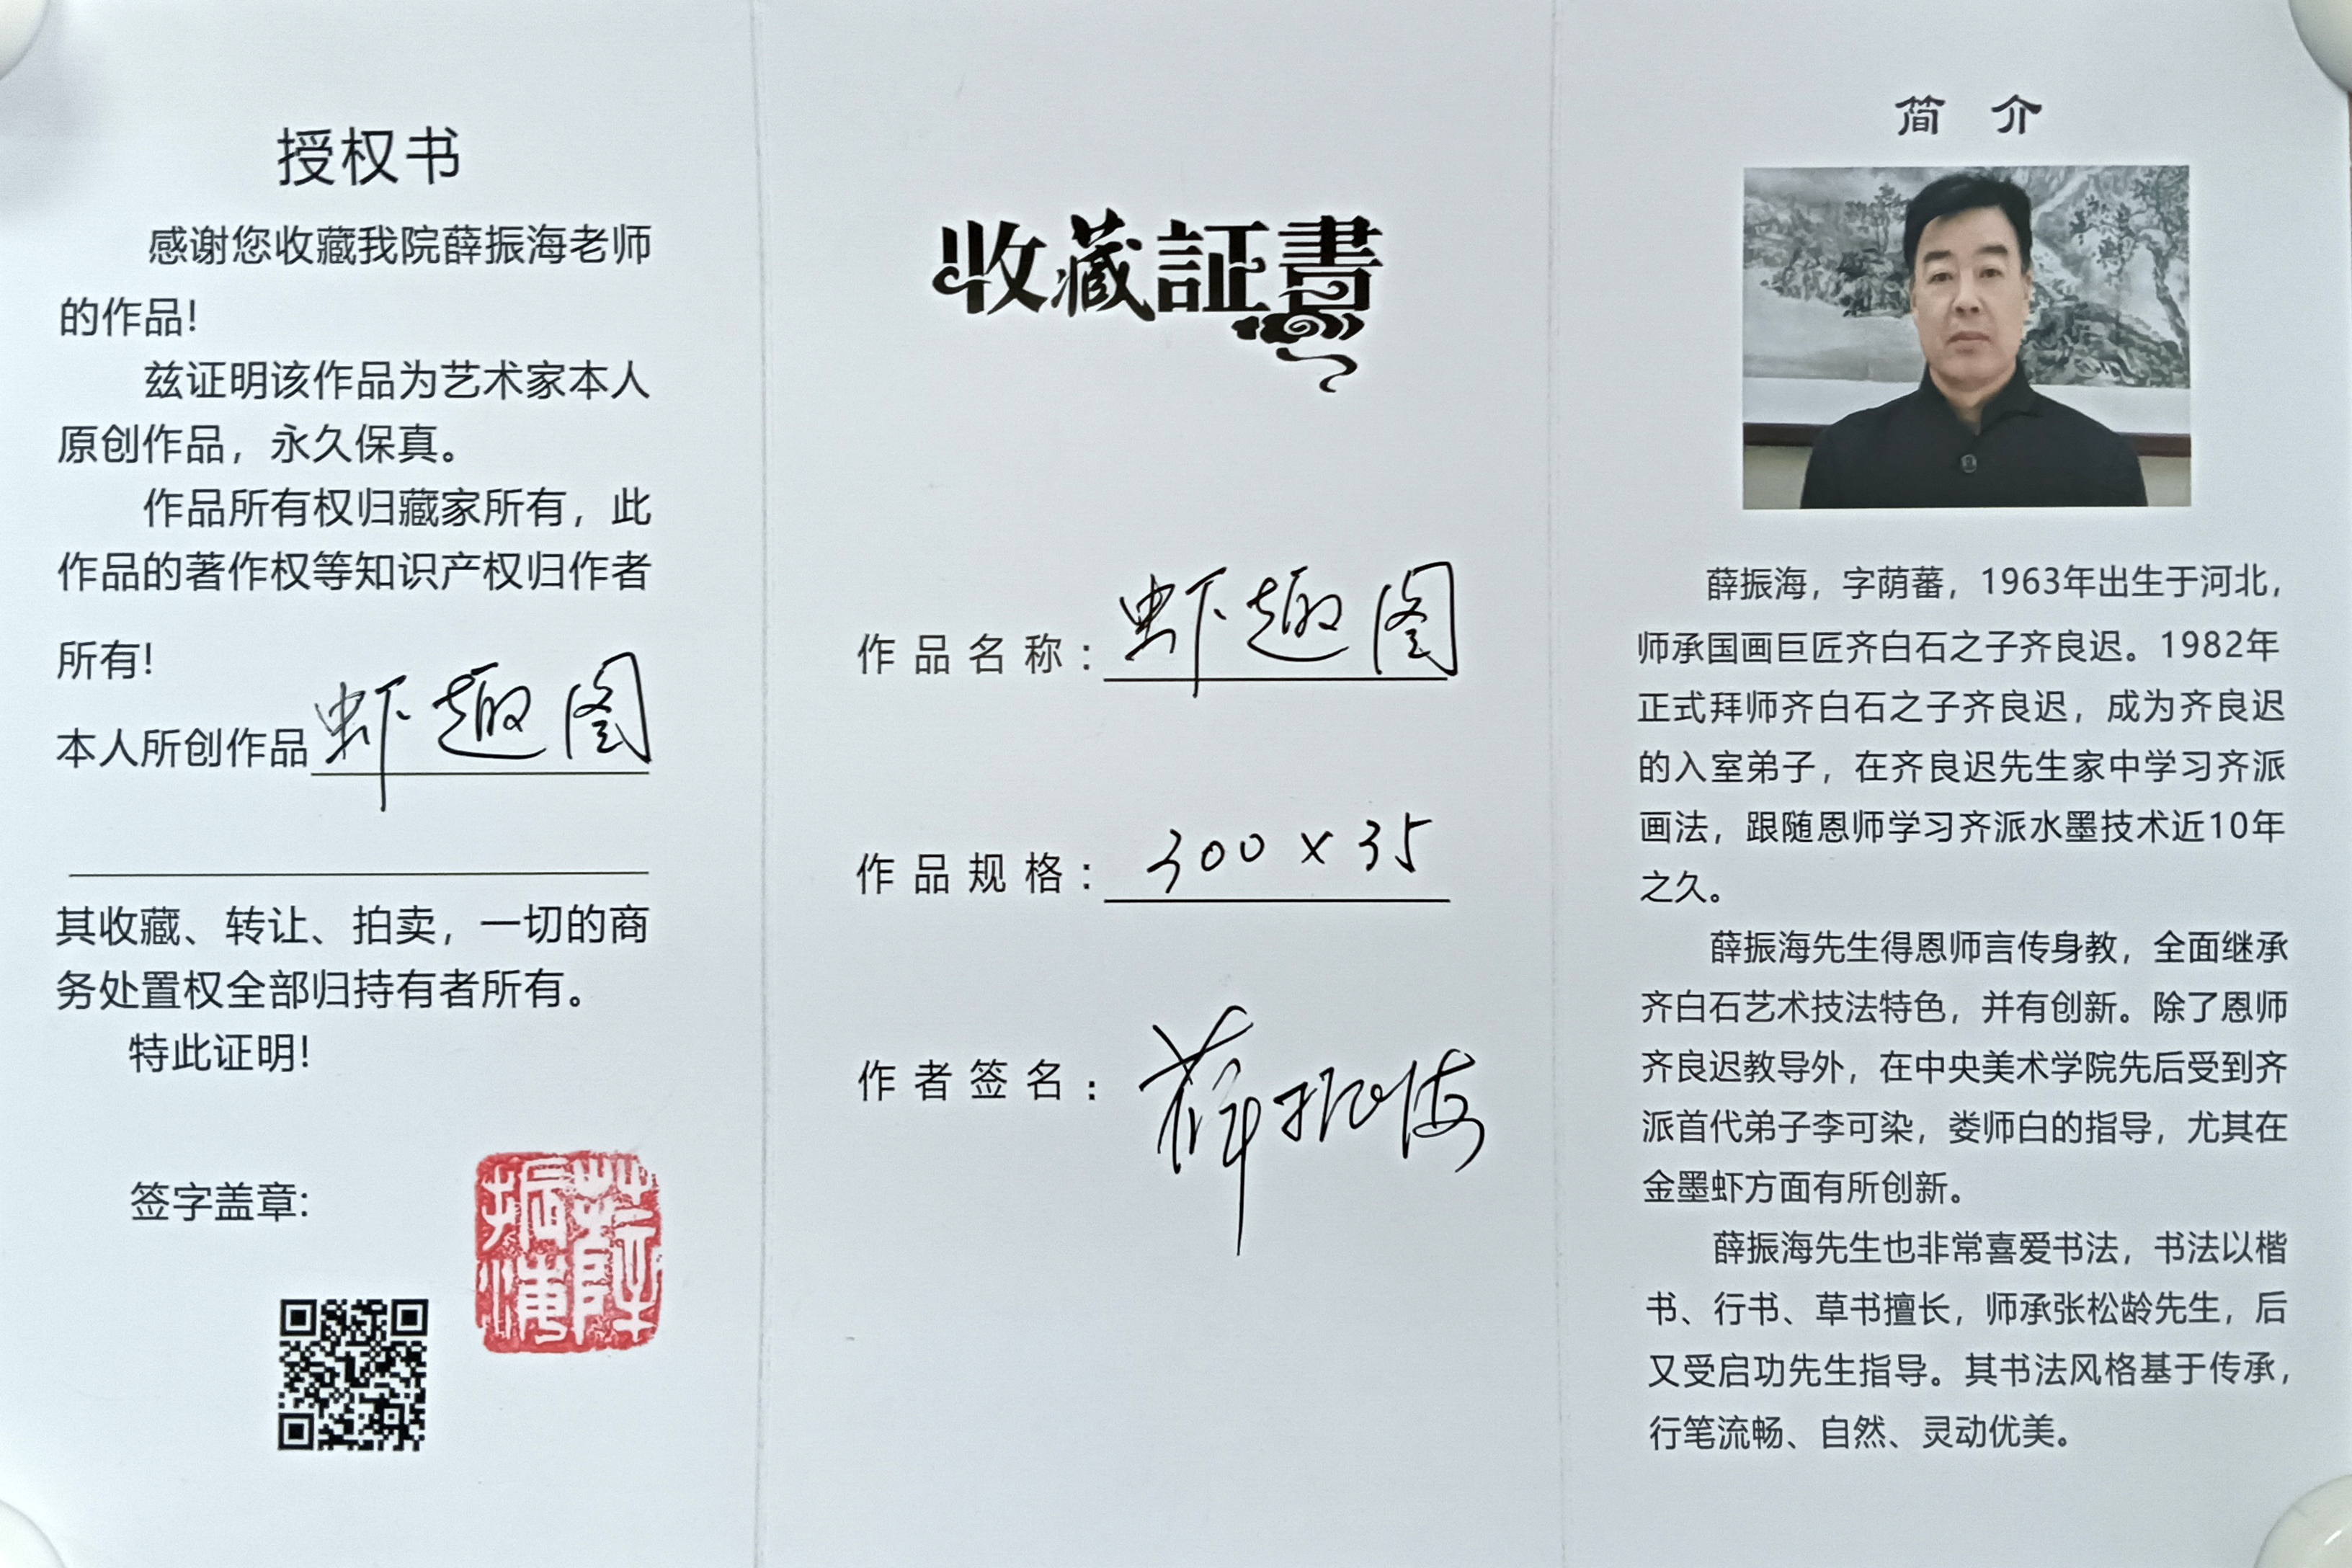 授权书
感谢您收藏我院薛振海老师
的作品!
兹证明该作品为艺术家本人
原创作品，永久保真。
作品所有权归藏家所有，此
作品的著作权等知识产权归作者
所有!
本人所创作品虾趣图
其收藏、转让、拍卖，一切的商
务处置权全部归持有者所有。
特此证明!
签字盖章:
薛振海
收藏証書
作品名称：虾趣图
作品规格：300×35
作者签名：薛振海
简介
薛振海，字荫蕃，1963年出生于河北，
师承国画巨匠齐白石之子齐良迟。1982年
正式拜师齐白石之子齐良迟，成为齐良迟
的入室弟子，在齐良迟先生家中学习齐派
画法，跟随恩师学习齐派水墨技术近10年
之久。
薛振海先生得恩师言传身教，全面继承
齐白石艺术技法特色，并有创新。除了恩师
齐良迟教导外，在中央美术学院先后受到齐
派首代弟子李可染，娄师白的指导，尤其在
金墨虾方面有所创新。
薛振海先生也非常喜爱书法，书法以楷
书、行书、草书擅长，师承张松龄先生，后
又受启功先生指导。其书法风格基于传承，
行笔流畅、自然、灵动优美。